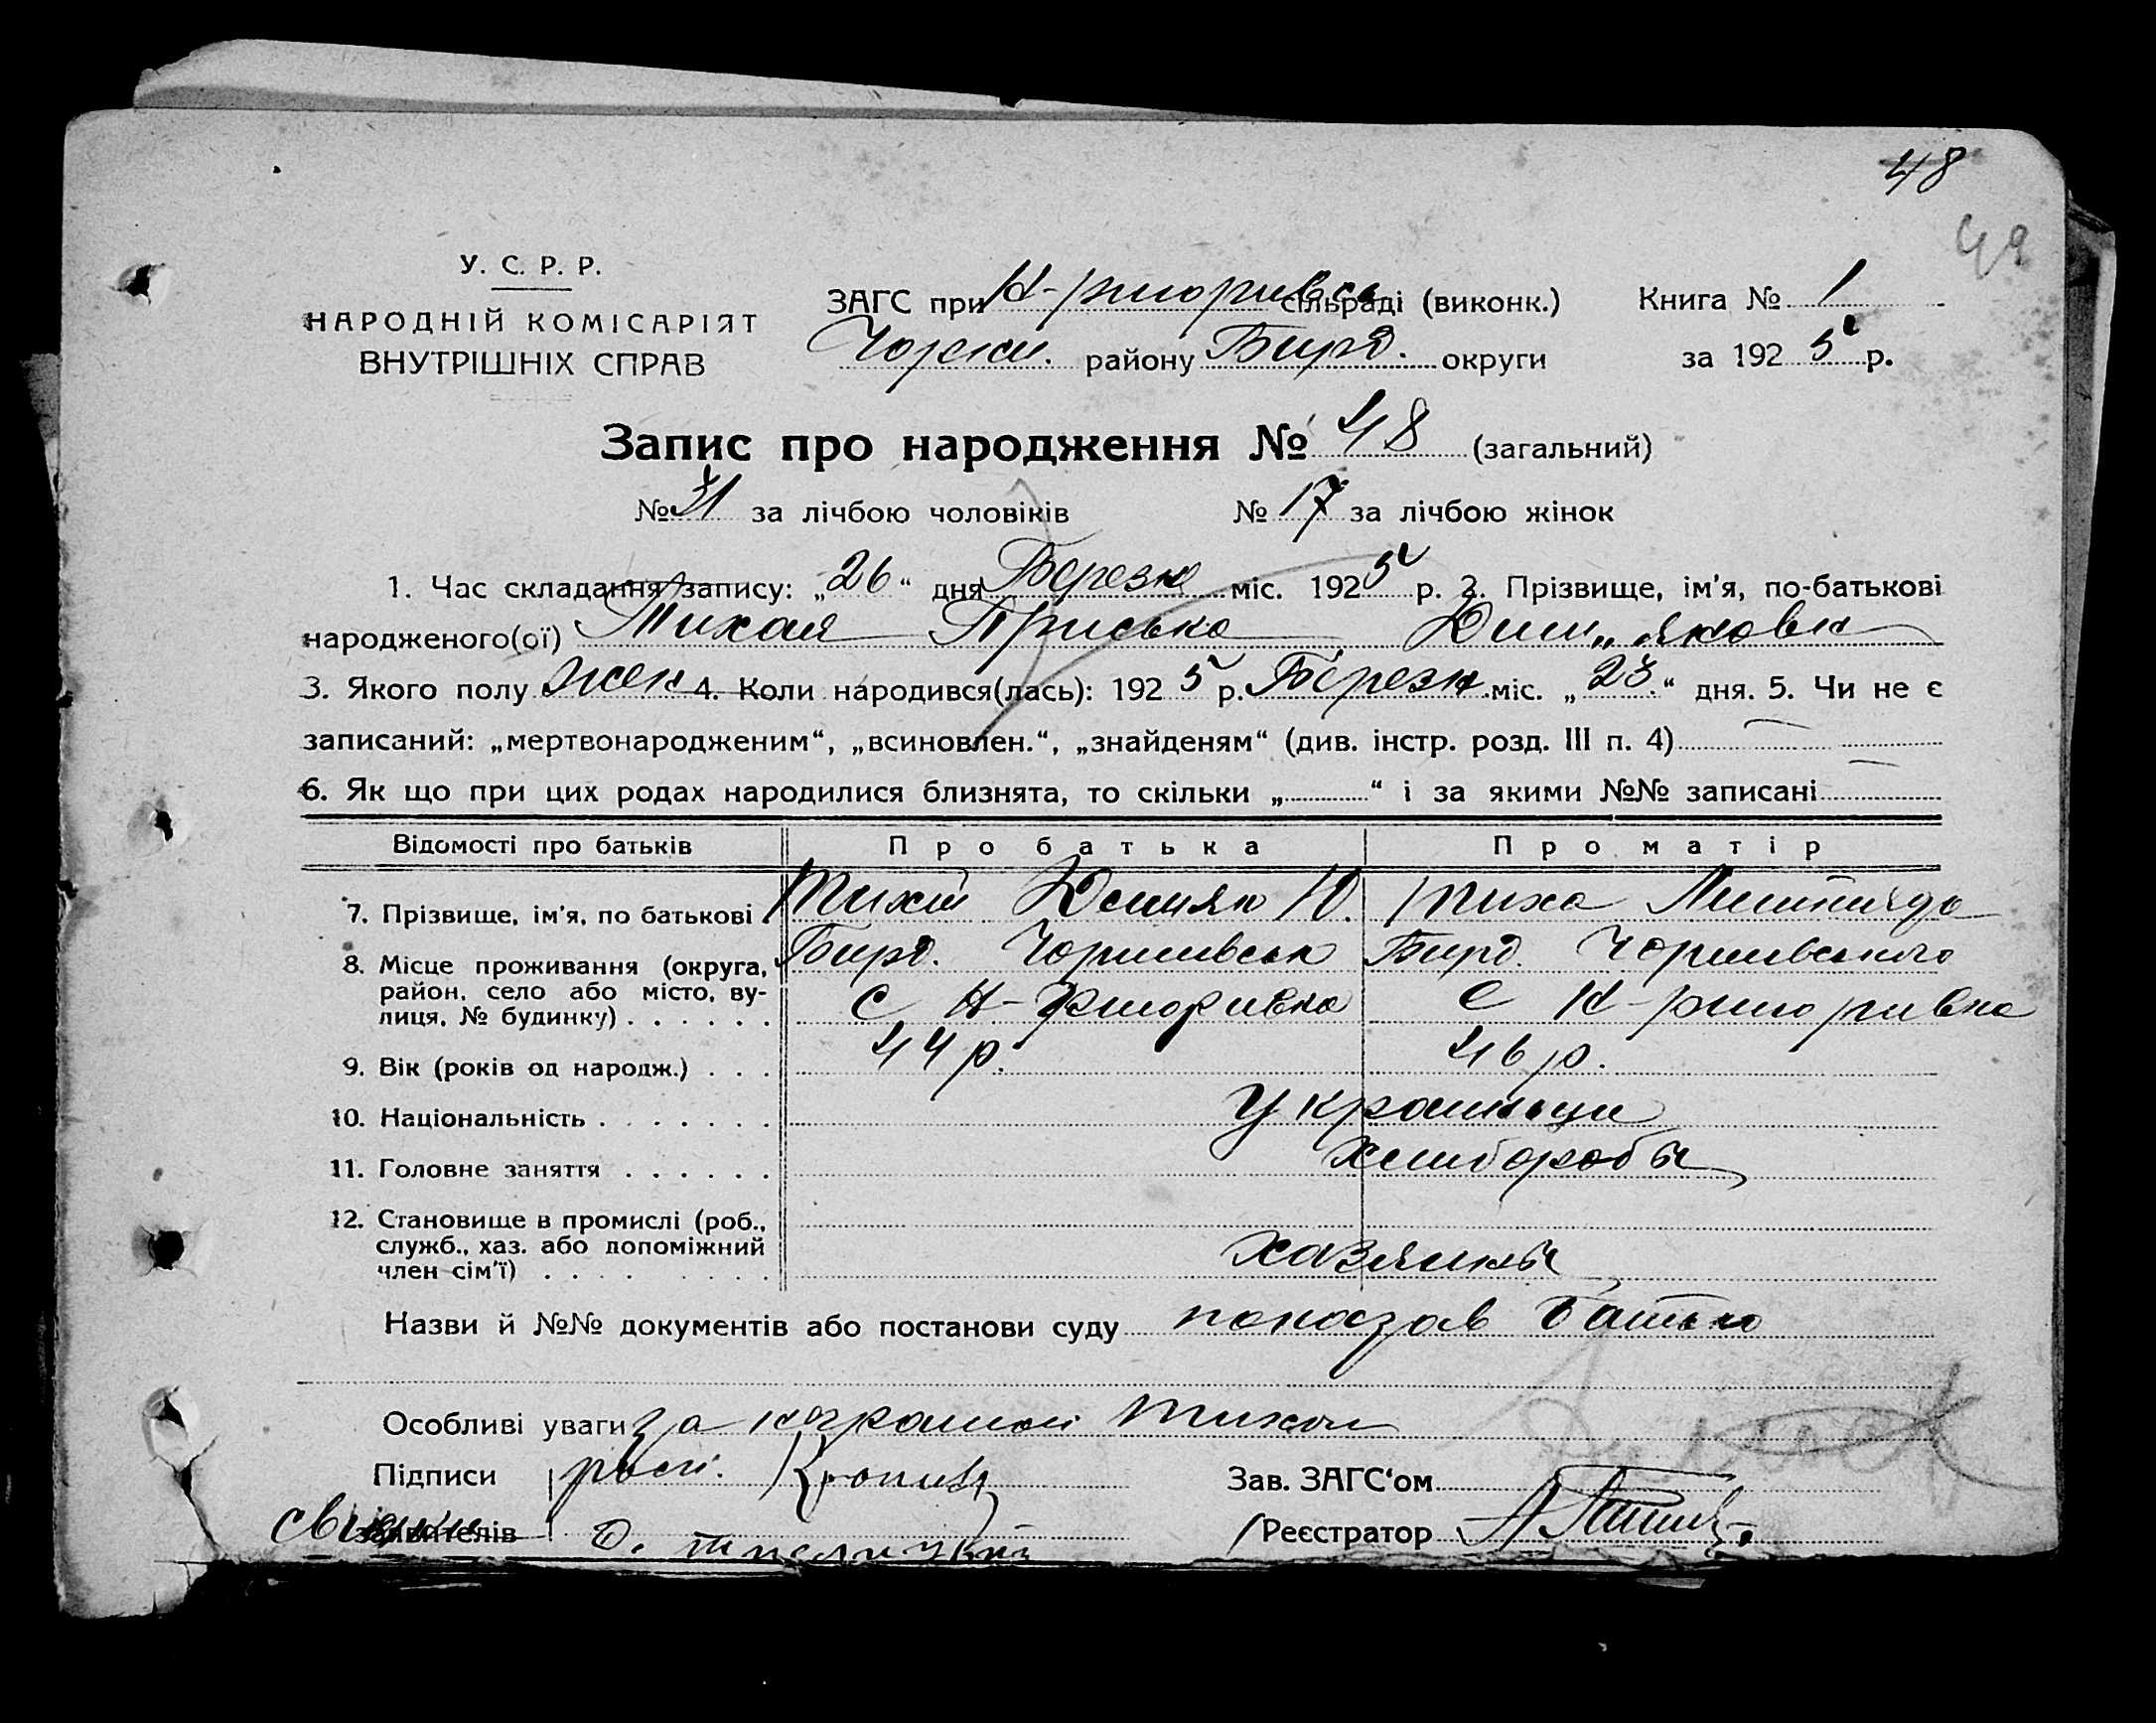 48
49
У. С. Р. Р.
НАРОДНІЙ КОМІСАРІЯТ
ВНУТРІШНІХ СПРАВ
ЗАГС при сільраді (виконк.)
району Бирд. округи
Книга № 1
за 1925 р.
Запис про народження № 48 (загальний)
№ 31 за лічбою чоловіків № 17 за лічбою жінок
1. Час складання запису: „26“ дня Березня міс. 1925 р. 2. Прізвище, ім'я, по-батькові
народженого(ої) Тихая Пріська
3. Якого полу жен 4. Коли народився(лась): 1925 р. Березн міс. „23“ дня. 5. Чи не є
записаний: „мертвонародженим“, „всиновлен.“, „знайденям“ (див. інстр. розд. III п. 4)
6. Як що при цих родах народилися близнята, то скільки „ “ і за якими №№ записані
Відомості про батьків Про батька Про матір
7. Прізвище, ім'я, по батькові Тихий Демян Ю. Тиха
8. Місце проживання (округа, район, село або місто, ву-
лиця, № будинку) Бирд. Бирд.
с с
9. Вік (років од народж.) 44 р. 46 р.
10. Національність Українци
11. Головне заняття Хлиборобы
12. Становище в промислі (роб.,
служб., хаз. або допоміжний
член сім'ї) хазяины
Назви й №№ документів або постанови суду показав батько
Особливі уваги за
Підписи
заявителів
Зав. ЗАГС'ом
Реєстратор